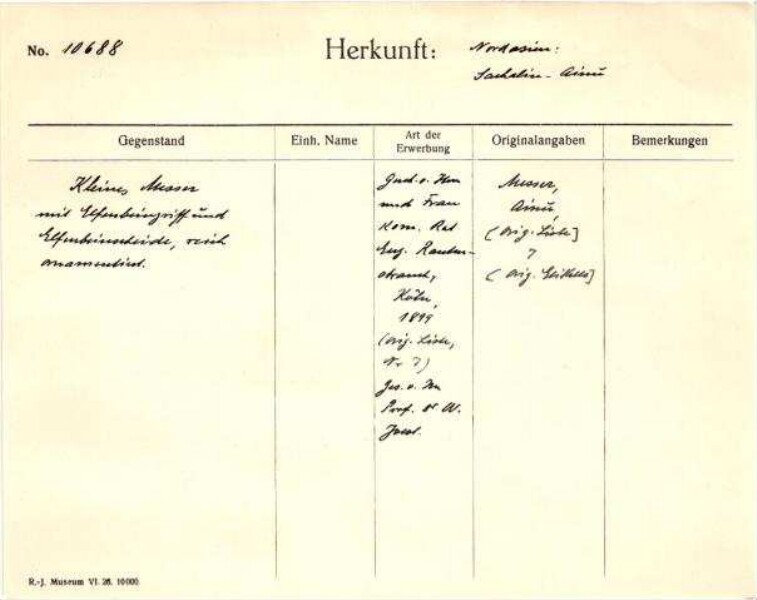 No. 10688
Herkunft: Nordasien:
Sachalin-Ainu
Gegenstand
Einh. Name
Art der
Erwerbung
Originalangaben
Bemerkungen
Kleines Messer
mit Elfenbeingriff und
Elfenbeinscheide, reich
ornamentiert.
Gesch. v. Hrn
und Frau
Kom. Rat
Eug. Rauten-
strauch,
Köln,
1899
(orig. Liste,
Nr 7)
Ges. v. Hrn
Prof. Dr W.
Joest.
Messer,
Ainu,
(orig. Liste]
7
(orig. Etikette]
R.-J. Museum VI. 26. 10000.